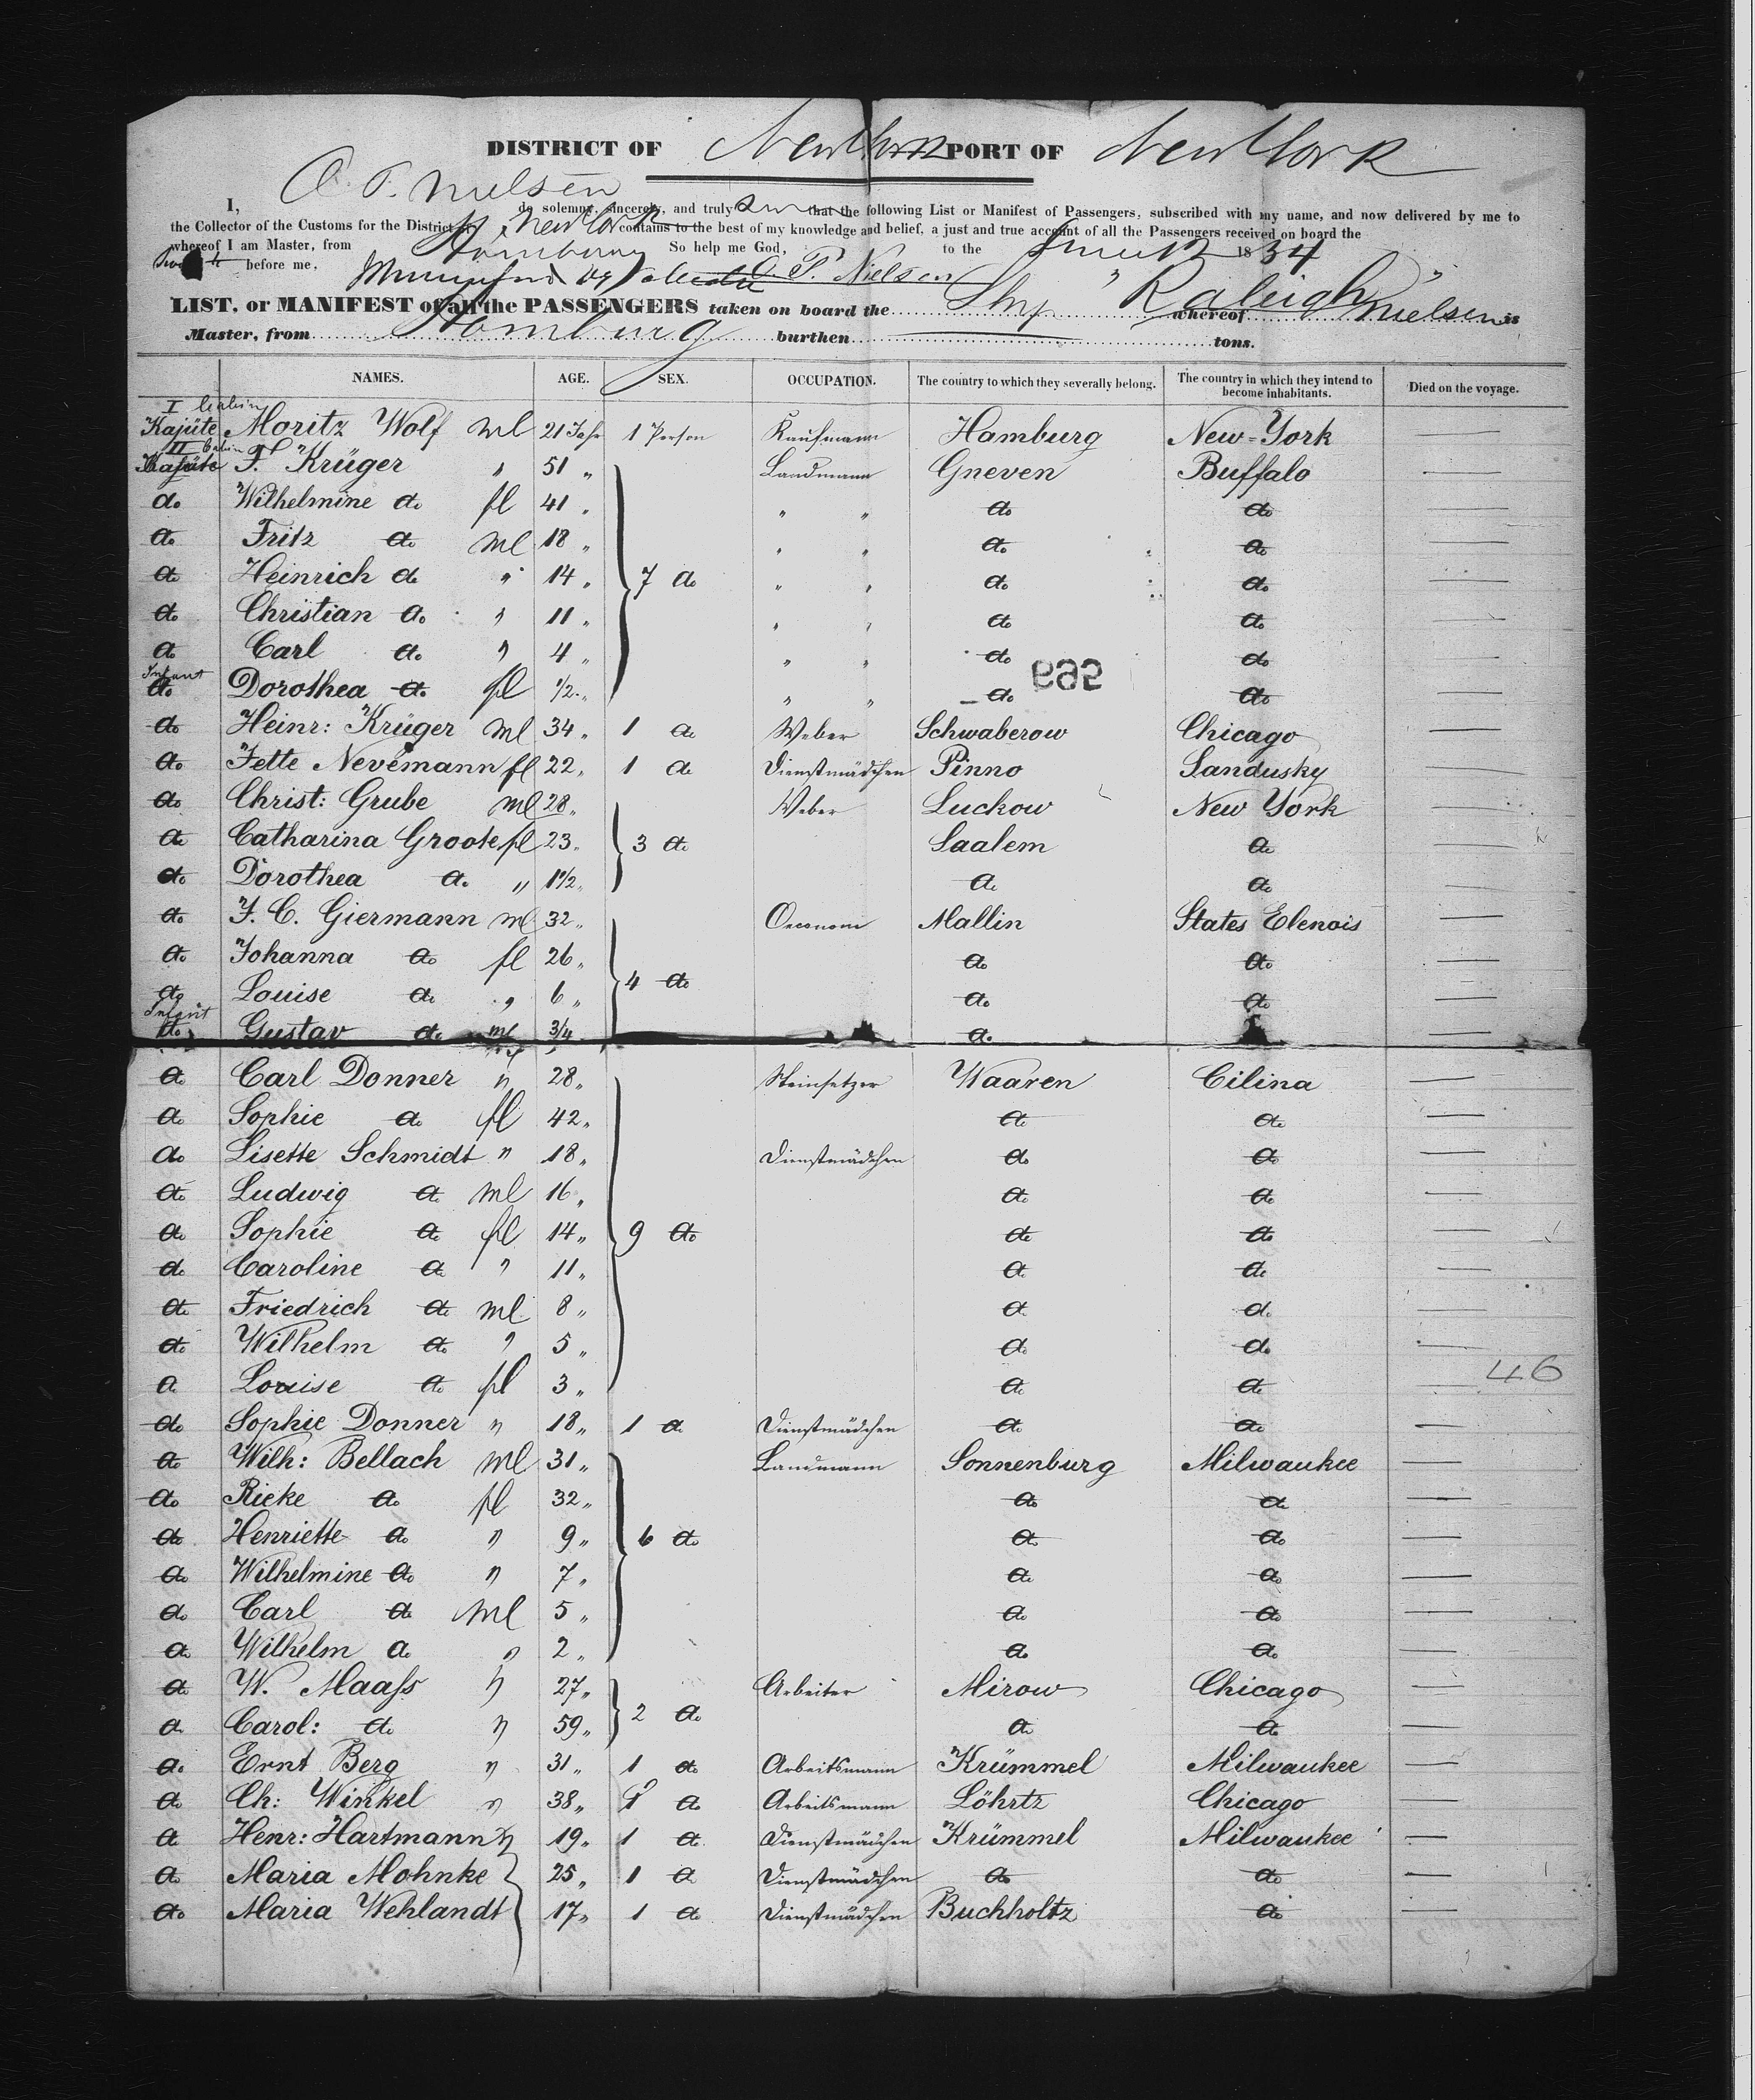 DISTRICT OF New York PORT OF New York
I, O. P. Nielsen do solemnly, sincerely, and truly that the following List or Manifest of Passengers, subscribed with my name, and now delivered by me to
the Collector of the Customs for the District of New York contains to the best of my knowledge and belief, a just and true account of all the Passengers received on board the
whereof I am Master, from Hamburg So help me God, to the June 12 18 54
before me, O. P. Nielsen
LIST, or MANIFEST of all the PASSENGERS taken on board the Ship "Raleigh" whereof Nielsen is
Master, from Hamburg burthen tons.
NAMES. AGE. SEX. OCCUPATION. The country to which they severally belong. The country in which they intend to become inhabitants. Died on the voyage.
I Cabin
Kajüte Moritz Wolf ml 21 Jahr 1 Person Kaufmann Hamburg New-York
II Cabin
Kajüte F. Krüger " 51 " Landmann Gneven Buffalo
do Wilhelmine do fl 41 " " " do do
do Fritz do ml 18 " " " do do
do Heinrich do " 14 " 7 do " " do do
do Christian do " 11 " " " do do
do Carl do " 4 " " " do do
Infant
do Dorothea do fl 1/2 " " " do do
965
do Heinr: Krüger ml 34 " 1 do Weber Schwaberow Chicago
do Jette Nevemann fl 22 " 1 do Dienstmädchen Pinno Sandusky
do Christ: Grube ml 28 " Weber Luckow New York
do Catharina Groote fl 23 " 3 do Saalem do
do Dorothea do " 1 1/2 " do do
do J. C. Giermann ml 32 " Oeconom Mallin States Elenois
do Johanna do fl 26 " do do
do Louise do " 6 " 4 do do do
Infant
do Gustav do ml 3/4 do
do Carl Donner " 28 " Steinsetzer Waaren Cilina
do Sophie do fl 42 " do do
do Lisette Schmidt " 18 " Dienstmädchen do do
do Ludwig do ml 16 " do do
do Sophie do fl 14 " 9 do do do
do Caroline do " 11 " do do
do Friedrich do ml 8 " do do
do Wilhelm do " 5 " do do
46
do Louise do fl 3 " do do
do Sophie Donner " 18 " 1 do Dienstmädchen do do
do Wilh: Bellach ml 31 " Landmann Sonnenburg Milwaukee
do Rieke do fl 32 " do do
do Henriette do " 9 " 6 do do do
do Wilhelmine do " 7 " do do
do Carl do ml 5 " do do
do Wilhelm do " 2 " do do
do W. Maass " 27 " Arbeiter Mirow Chicago
do Carol: do " 59 " 2 do do do
do Ernt Berg " 31 " 1 do Arbeitsmann Krümmel Milwaukee
do Ch: Winkel " 38 " 1 do Arbeitsmann Löhrtz Chicago
do Henr: Hartmann 19 " 1 do Dienstmädchen Krümmel Milwaukee
do Maria Mohnke 25 " 1 do Dienstmädchen do do
do Maria Wehlandt 17 " 1 do Dienstmädchen Buchholtz do